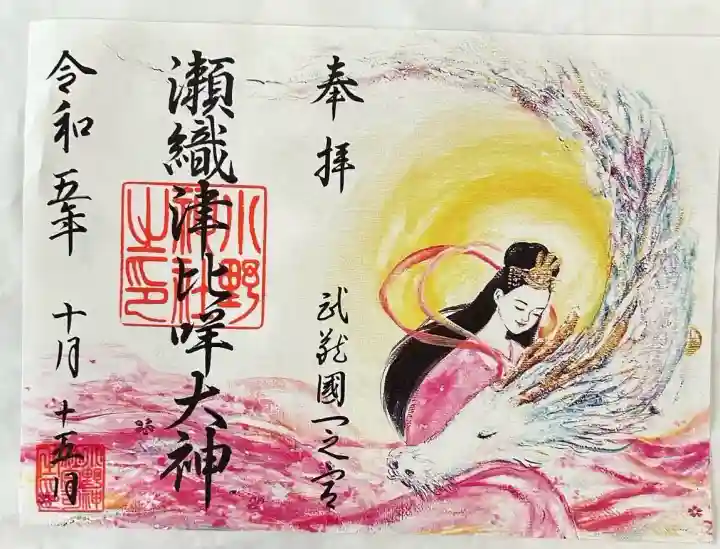 奉拝
武蔵國一之宮
瀬織津比咩大神
小野神社之印
令和五年 十月 十五日